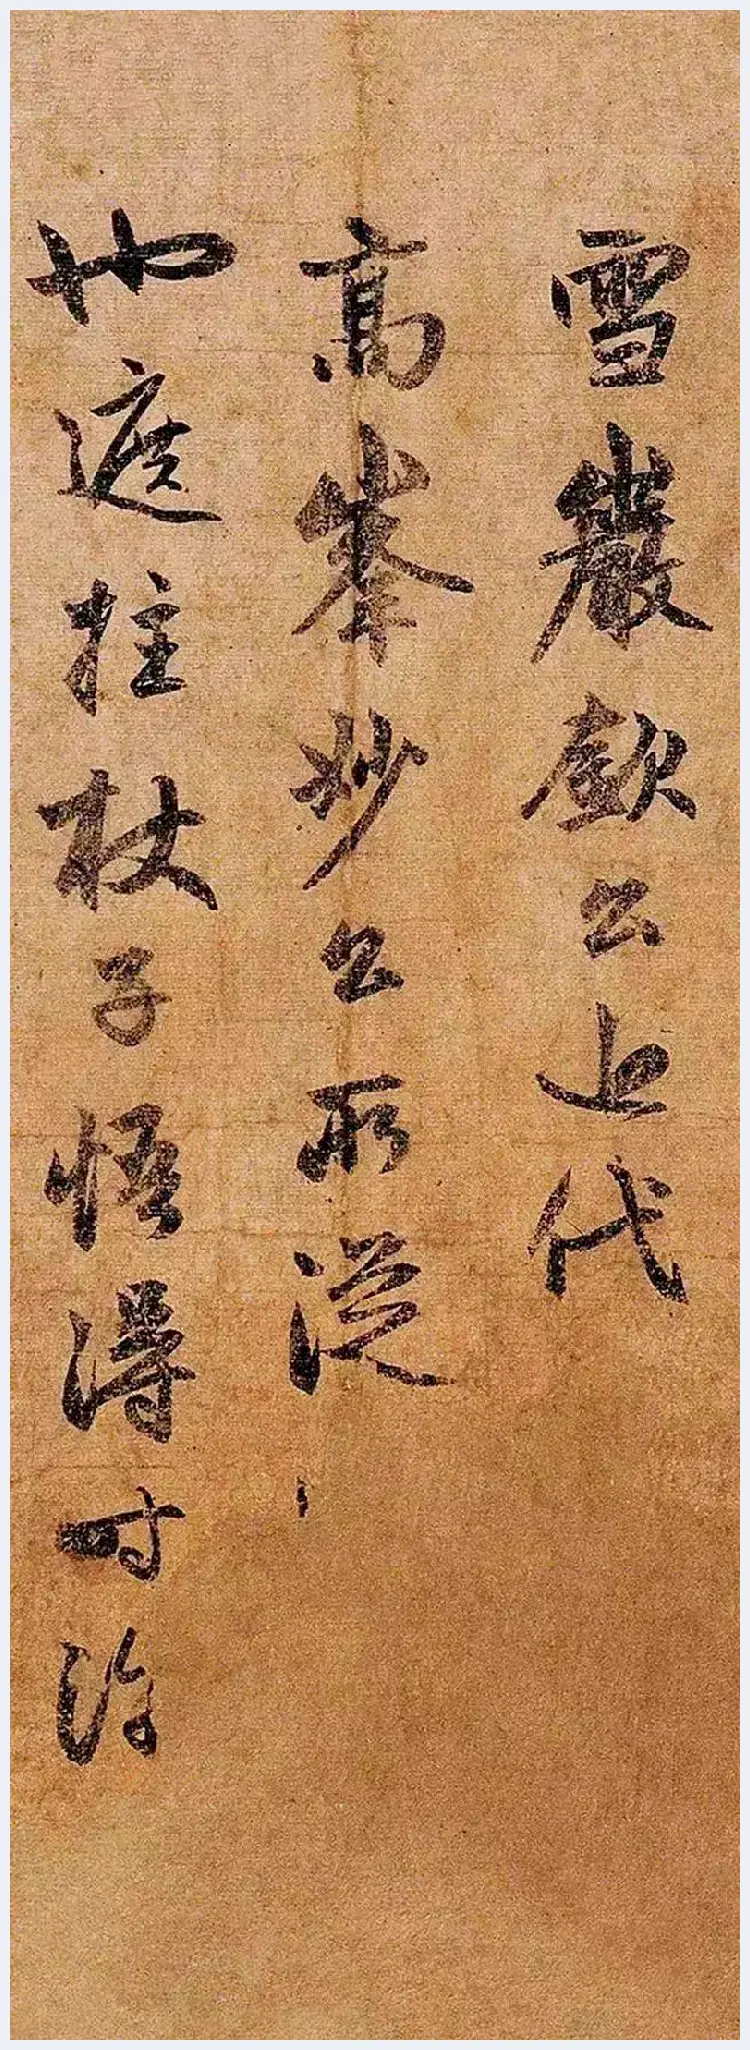 雪巖欽公代
高峯妙公所從
也遮拄杖子悟得时